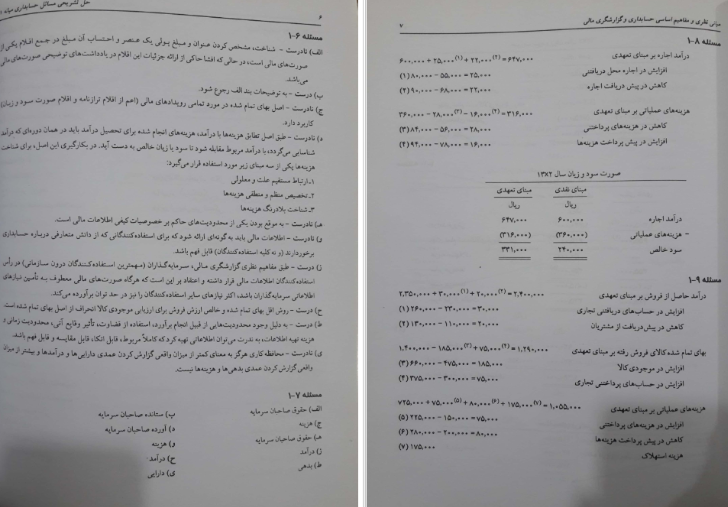 ۶
حل تشریحی مسائل حسابداری میانه
مسئله ۶-۱
الف) نادرست - شناخت، مشخص کردن عنوان و مبلغ پولی یک عنصر و احتساب آن مبلغ در جمع اقلام یکی از
صورت‌های مالی است، در حالی که افشا حاکی از ارائه جزئیات این اقلام در یادداشت‌های توضیحی صورت‌های مالی
می‌باشد.
ب) درست - به توضیحات بند الف رجوع شود.
ج) نادرست - اصل بهای تمام شده در مورد تمامی رویدادهای مالی (اعم از اقلام ترازنامه و اقلام صورت سود و زیان)
کاربرد دارد.
د) نادرست - طبق اصل تطابق هزینه‌ها با درآمد، هزینه‌های انجام شده برای تحصیل درآمد باید در همان دوره‌ای که درآمد
شناسایی می‌گردد، با درآمد مربوط مقابله شود تا سود یا زیان خالص به دست آید. در بکارگیری این اصل، برای شناخت
هزینه‌ها یکی از سه مبنای زیر مورد استفاده قرار می‌گیرد:
۱ـ ارتباط مستقیم علت و معلولی
۲ـ تخصیص منظم و منطقی هزینه‌ها
۳ـ شناخت بلادرنگ هزینه‌ها
هـ) نادرست - به موقع بودن یکی از محدودیت‌های حاکم بر خصوصیات کیفی اطلاعات مالی است.
و) نادرست - اطلاعات مالی باید به گونه‌ای ارائه شود که برای استفاده‌کنندگانی که از دانش متعارفی درباره حسابداری
برخوردارند (و نه کلیه استفاده‌کنندگان) قابل فهم باشد.
ز) درست - طبق مفاهیم نظری گزارشگری مالی، سرمایه‌گذاران (مهمترین استفاده‌کنندگان درون سازمانی) در رأس
استفاده‌کنندگان اطلاعات مالی قرار داشته و اعتقاد بر این است که هرگاه صورت‌های مالی معطوف به تأمین نیازهای
اطلاعاتی سرمایه‌گذاران باشد، اکثر نیازهای سایر استفاده‌کنندگان را نیز در حد توان برآورده می‌کند.
ح) درست - روش اقل بهای تمام شده و خالص ارزش فروش برای ارزیابی موجودی کالا انحراف از اصل بهای تمام شده است.
ط) درست - به دلیل وجود محدودیت‌هایی از قبیل انجام برآورد، استفاده از قضاوت، تأثیر وقایع آتی، محدودیت زمانی و
هزینه تهیه اطلاعات، به ندرت می‌توان اطلاعاتی تهیه کرد که کاملاً مربوط، قابل اتکا، قابل مقایسه و قابل فهم باشد.
ی) نادرست - محافظه کاری هرگز به معنای کمتر از میزان واقعی گزارش کردن عمدی دارایی‌ها و درآمدها و بیشتر از میزان
واقعی گزارش کردن عمدی بدهی‌ها و هزینه‌ها نیست.
مسئله ۷-۱
الف) حقوق صاحبان سرمایه ب) ستانده صاحبان سرمایه
ج) هزینه د) آورده صاحبان سرمایه
هـ) حقوق صاحبان سرمایه و) هزینه
ز) درآمد ح) درآمد
ط) بدهی ی) دارایی
مبانی نظری و مفاهیم اساسی حسابداری و گزارشگری مالی ۷
مسئله ۸-۱
درآمد اجاره بر مبنای تعهدی ۶۰۰,۰۰۰ + ۲۵,۰۰۰(۱) + ۲۲,۰۰۰(۲) = ۶۴۷,۰۰۰
افزایش در اجاره محل دریافتنی (۱) ۸۰,۰۰۰ - ۵۵,۰۰۰ = ۲۵,۰۰۰
کاهش در پیش دریافت اجاره (۲) ۹۰,۰۰۰ - ۶۸,۰۰۰ = ۲۲,۰۰۰
هزینه‌های عملیاتی بر مبنای تعهدی ۳۶۰,۰۰۰ - ۲۸,۰۰۰(۳) - ۱۶,۰۰۰(۴) = ۳۱۶,۰۰۰
کاهش در هزینه‌های پرداختنی (۳) ۸۴,۰۰۰ - ۵۶,۰۰۰ = ۲۸,۰۰۰
افزایش در پیش پرداخت هزینه‌ها (۴) ۹۴,۰۰۰ - ۷۸,۰۰۰ = ۱۶,۰۰۰
صورت سود و زیان سال ۱۳×۲
مبنای نقدی مبنای تعهدی
ریال ریال
درآمد اجاره ۶۰۰,۰۰۰ ۶۴۷,۰۰۰
- هزینه‌های عملیاتی (۳۶۰,۰۰۰) (۳۱۶,۰۰۰)
سود خالص ۲۴۰,۰۰۰ ۳۳۱,۰۰۰
مسئله ۹-۱
درآمد حاصل از فروش بر مبنای تعهدی ۲,۳۵۰,۰۰۰ + ۳۰,۰۰۰(۱) + ۲۰,۰۰۰(۲) = ۲,۴۰۰,۰۰۰
افزایش در حساب‌های دریافتنی تجاری (۱) ۲۶۰,۰۰۰ - ۲۳۰,۰۰۰ = ۳۰,۰۰۰
کاهش در پیش‌دریافت از مشتریان (۲) ۱۳۰,۰۰۰ - ۱۱۰,۰۰۰ = ۲۰,۰۰۰
بهای تمام شده کالای فروش رفته بر مبنای تعهدی ۱,۴۰۰,۰۰۰ - ۱۸۵,۰۰۰(۳) + ۷۵,۰۰۰(۴) = ۱,۲۹۰,۰۰۰
افزایش در موجودی کالا (۳) ۶۶۰,۰۰۰ - ۴۷۵,۰۰۰ = ۱۸۵,۰۰۰
افزایش در حساب‌های پرداختنی تجاری (۴) ۳۷۵,۰۰۰ - ۳۰۰,۰۰۰ = ۷۵,۰۰۰
هزینه‌های عملیاتی بر مبنای تعهدی ۷۲۵,۰۰۰ + ۷۵,۰۰۰(۵) + ۸۰,۰۰۰(۶) + ۱۷۵,۰۰۰(۷) = ۱,۰۵۵,۰۰۰
افزایش در هزینه‌های پرداختنی (۵) ۲۲۵,۰۰۰ - ۱۵۰,۰۰۰ = ۷۵,۰۰۰
کاهش در پیش پرداخت هزینه‌ها (۶) ۲۸۰,۰۰۰ - ۲۰۰,۰۰۰ = ۸۰,۰۰۰
هزینه استهلاک (۷) ۱۷۵,۰۰۰